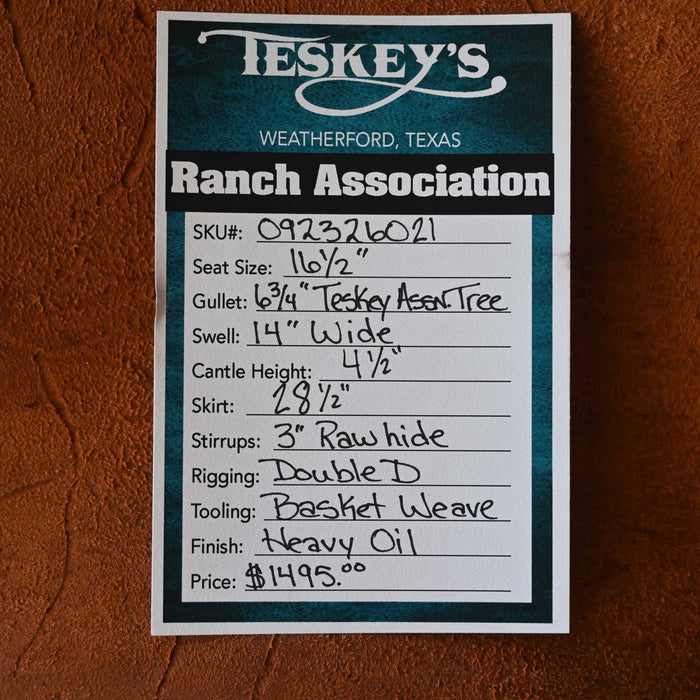 TESKEY'S
WEATHERFORD, TEXAS
Ranch Association
SKU#: 092326021
Seat Size: 16 1/2"
Gullet: 6 3/4" Teskey Assn. Tree
Swell: 14" Wide
Cantle Height: 4 1/2"
Skirt: 28 1/2"
Stirrups: 3" Rawhide
Rigging: Double D
Tooling: Basket Weave
Finish: Heavy Oil
Price: $1495.00